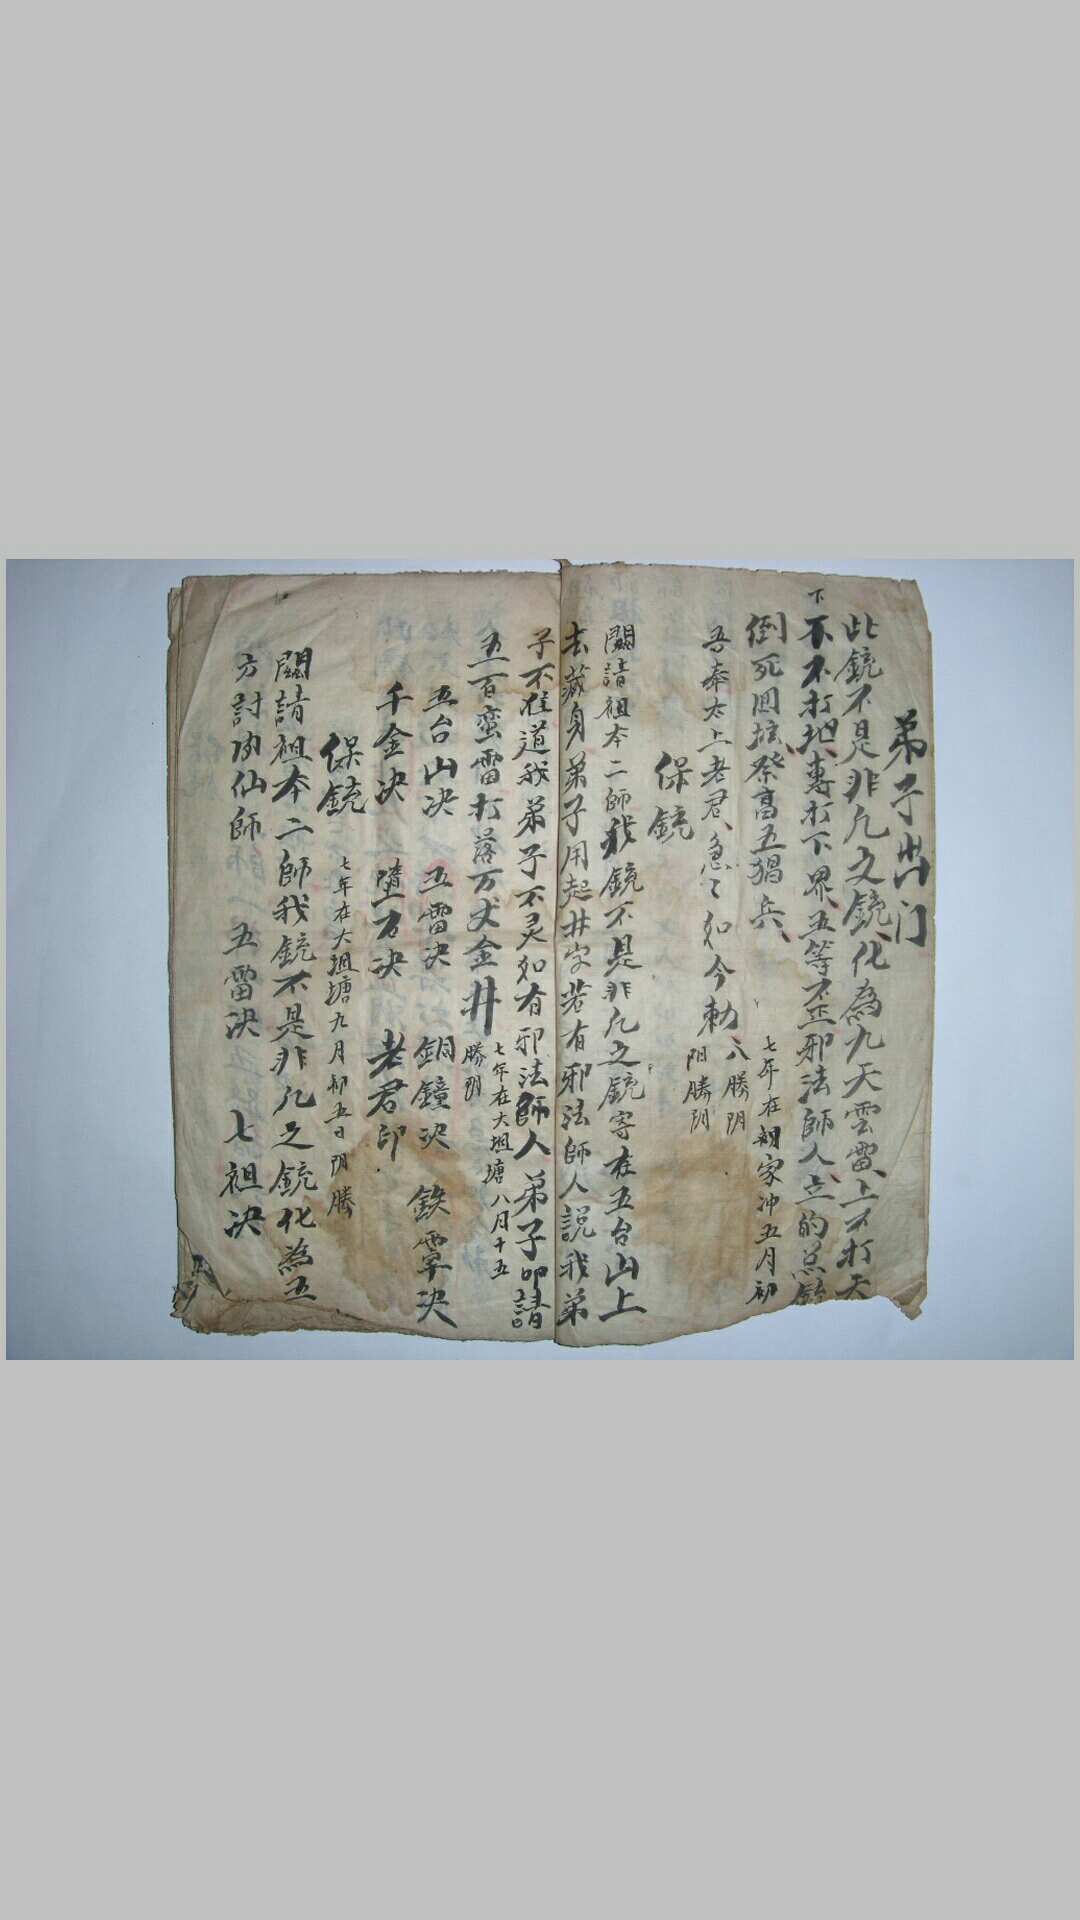 弟子出门
此鏡不是非凡之鏡化為九天雲雷上不打天
下不打地專打下界五等不正邪法師人立的
倒死回坛祭高五猖兵
七年在胡家冲五月初
八勝阴
阳勝阴
吾奉太上老君急〻如令勅
保鏡
闗請祖本二師我鏡不是非凡之鏡寄在五台山上
去藏身弟子用起井字若有邪法師人説我弟
子不在道我弟子不灵如有邪法師人弟子叩請
五百蛮雷打落万丈金井
七年在大坥塘八月十五
勝阴
五台山决 五雷决 銅鐘决 鉄覃决
千金决 墮石决 老君印
保鏡
七年在大坥塘九月初五日阴勝
闗請祖本二師我鏡不是非凡之鏡化為五
方討仙師 五雷决 七祖决